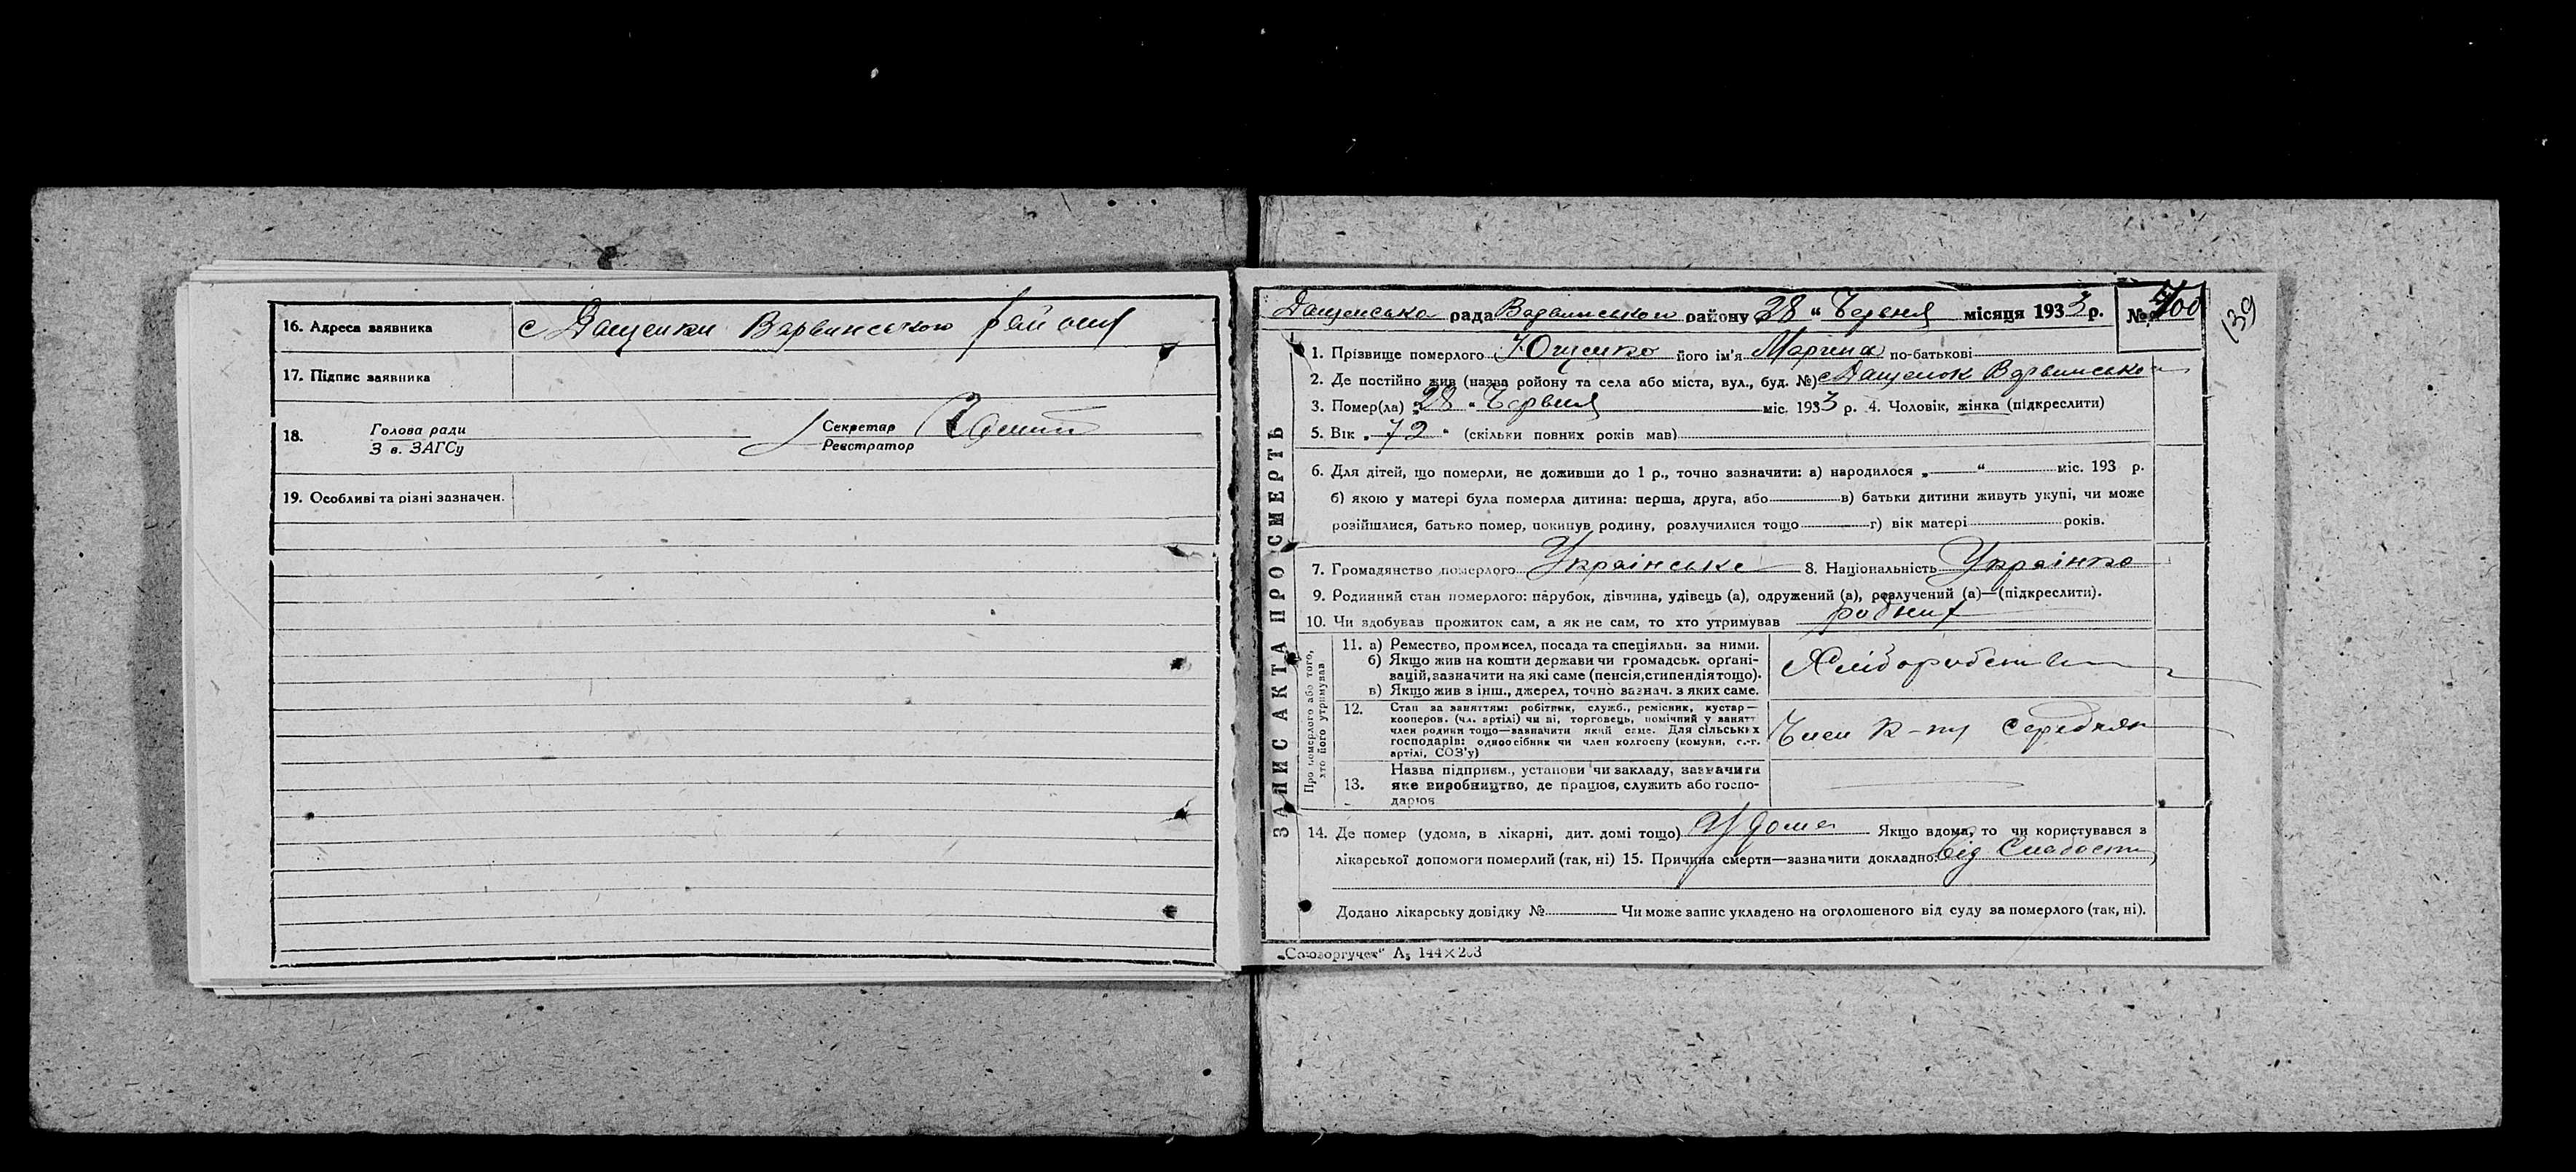 16. Адреса заявника с Дащенки Варвинського району
17. Підпис заявника
18. Голова ради
З в. ЗАГСу
Секретар
Реєстратор
19. Особливі та різні зазначен.
Дащенська рада Варвинського району 28 " Червня місяця 1933 р. №
139
1. Прізвище померлого Ющенко його ім'я Марина по-батькові
2. Де постійно жив (назва району та села або міста, вул., буд. №) с Дащенок Варвинського
3. Помер(ла) „28 " Червня міс. 1933 р. 4. Чоловік, жінка (підкреслити)
5. Вік „ 72 " (скільки повних років мав)
6. Для дітей, що померли, не доживши до 1 р., точно зазначити: а) народилося „ " міс. 193 р.
б) якою у матері була померла дитина: перша, друга, або в) батьки дитини живуть укупі, чи може
розійшлися, батько помер, покинув родину, розлучилися тощо г) вік матері років.
7. Громадянство померлого Українське 8. Національність Українка
9. Родинний стан померлого: парубок, дівчина, удівець (а), одружений (а), розлучений (а)—(підкреслити).
10. Чи здобував прожиток сам, а як не сам, то хто утримував
ЗАПИС АКТА ПРО СМЕРТЬ
Про померлого або того,
хто його утримував
11. а) Ремество, промисел, посада та спеціяльн. за ними.
б) Якщо жив на кошти держави чи громадськ. органі-
вацій, зазначити на які саме (пенсія, стипендія тощо).
в) Якщо жив з інш., джерел, точно зазнач. з яких саме.
12. Стан за заняттям: робітник, служб., ремісник, кустар—
кооперов. (чл. артілі) чи ні, торговець, помічний у занятт
член родини тощо—зазначити який саме. Для сільських
господарів: одноосібник чи член колгоспу (комуни, с.-г.
артілі, СОЗ'у)
Член к-пу середняк
13. Назва підприєм., установи чи закладу, зазначити
яке виробництво, де працює, служить або госпо-
дарює
14. Де помер (удома, в лікарні, дит. домі тощо) Удома Якщо вдома, то чи користувався з
лікарської допомоги померлий (так, ні) 15. Причина смерти—зазначити докладно: від Слабости
Додано лікарську довідку № Чи може запис укладено на оголошеного від суду за померлого (так, ні).
„Союзоргучет" А₅ 144×203